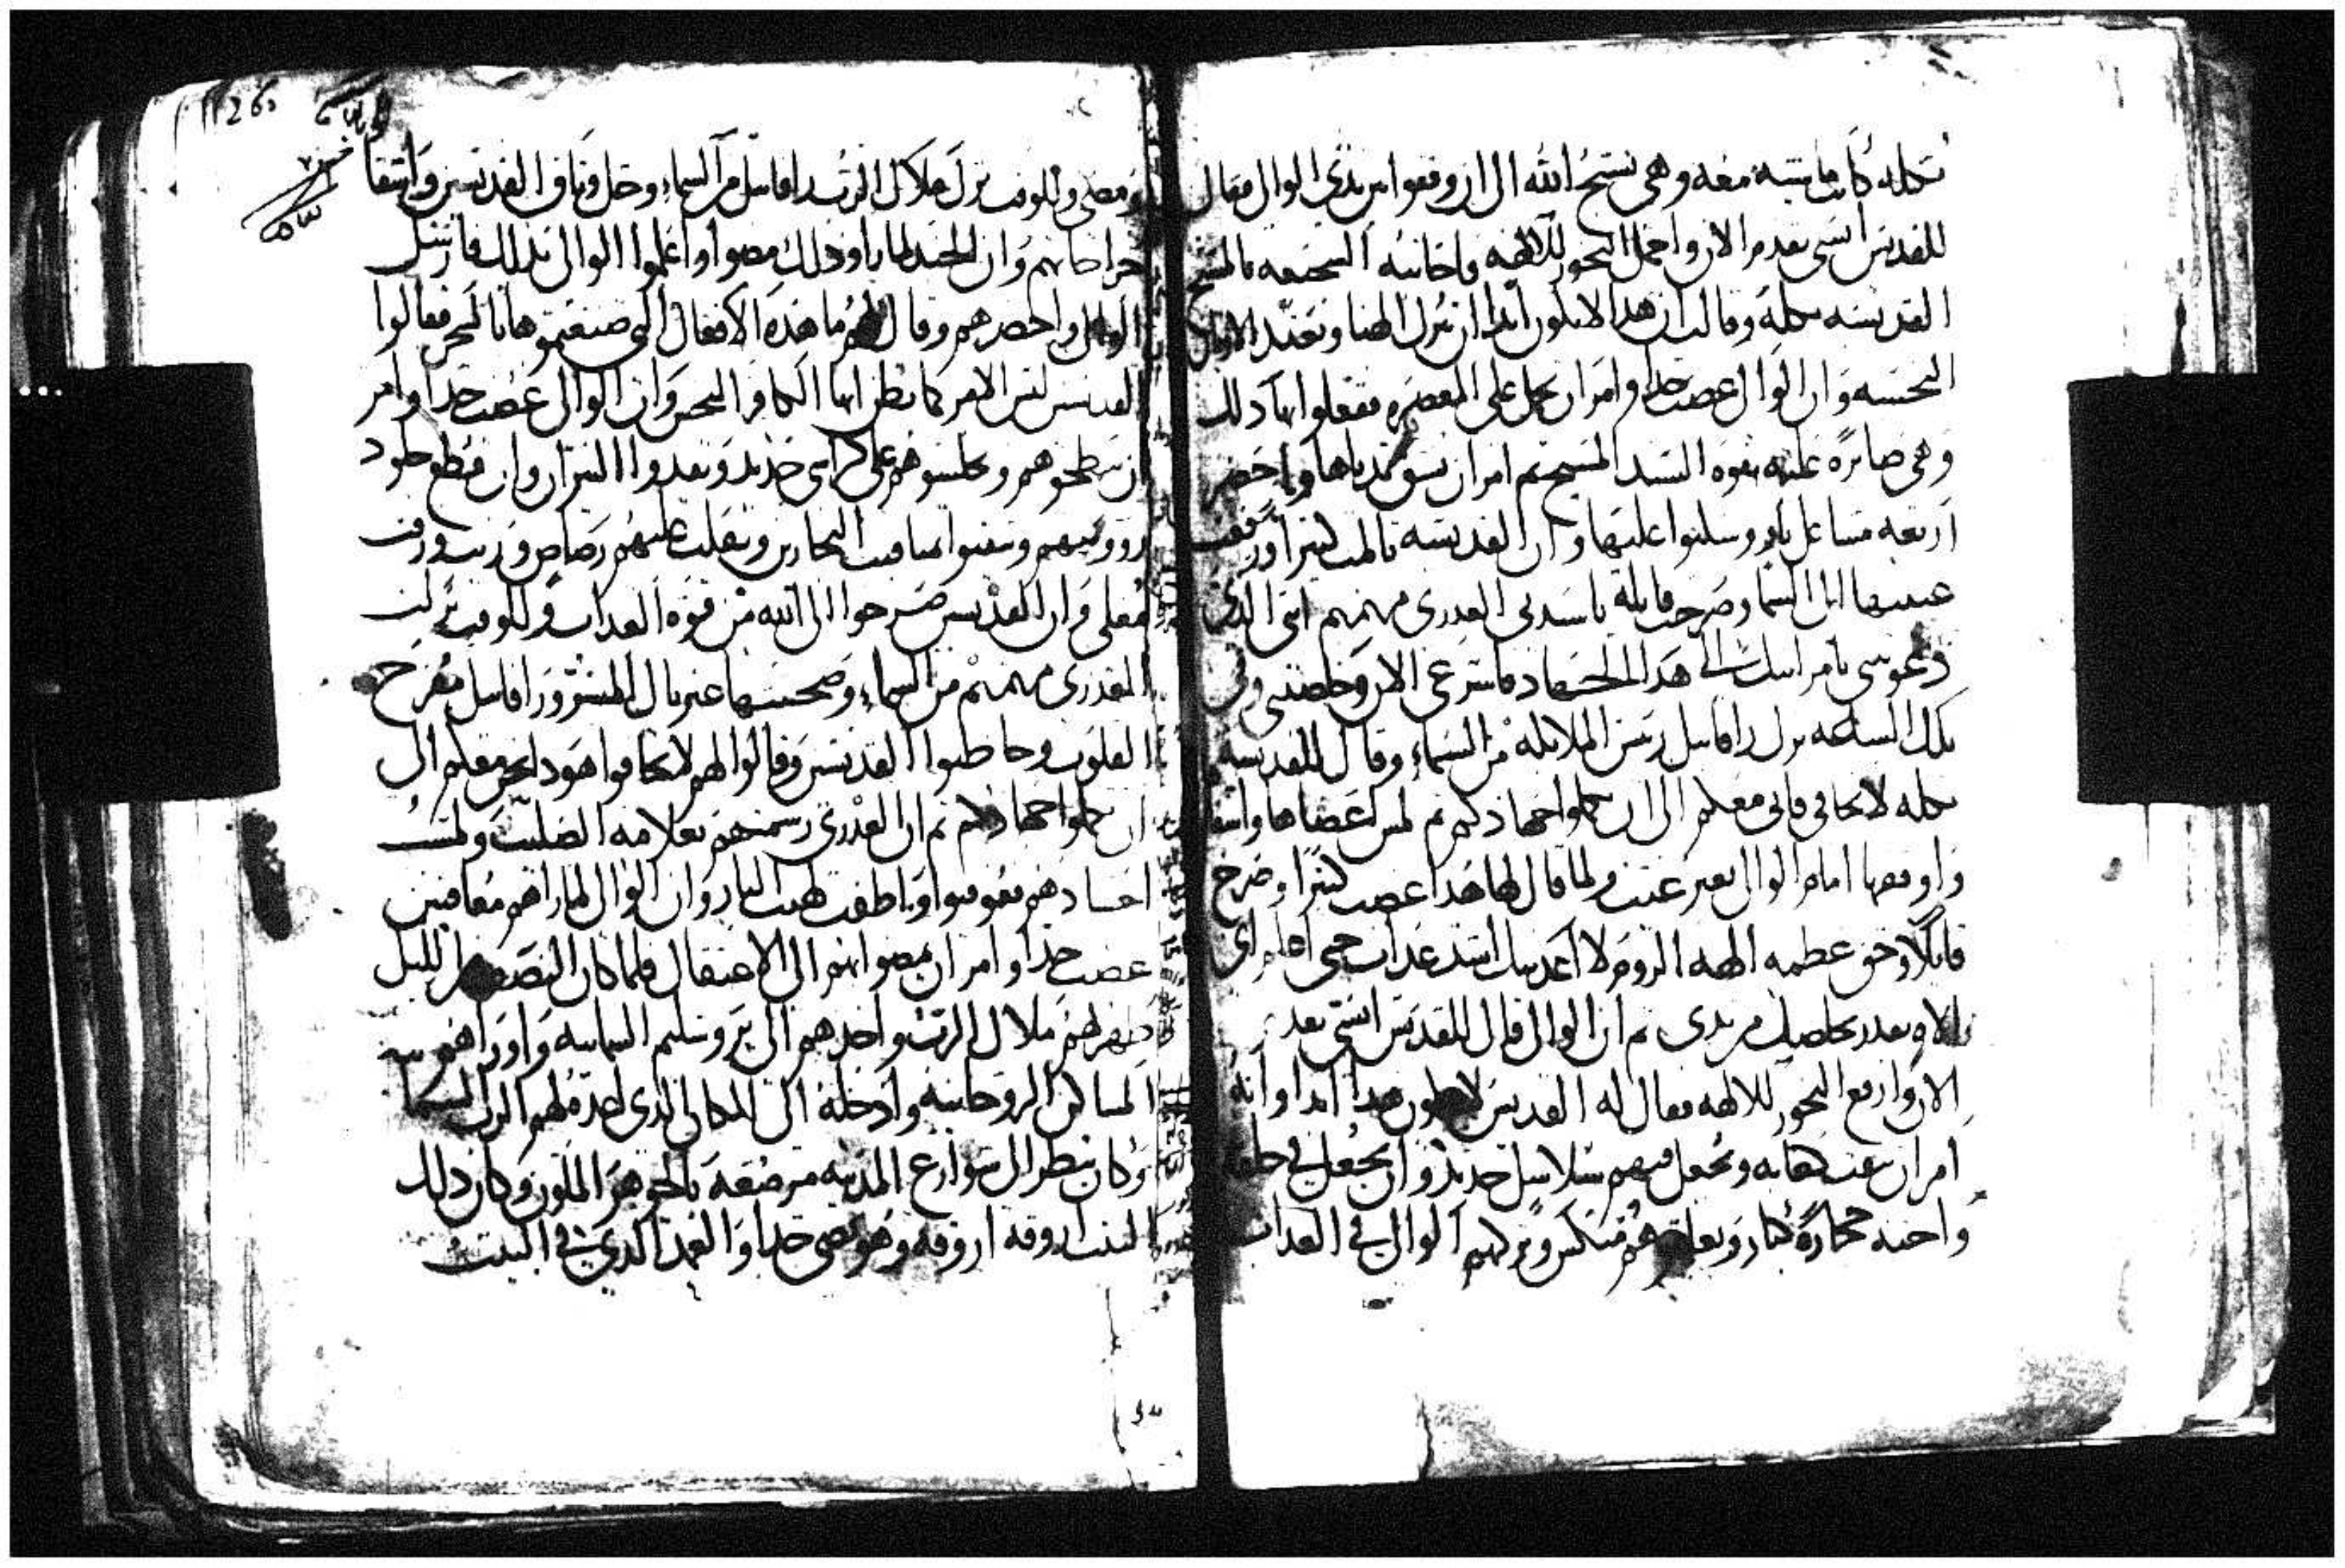 تكله كانت ماشيه معه وهي تسبح الله الى ان وقفوا بين يدي الوالى فقال
للقديس ابسى تقدم الان واحمل البخور للالهه فاجابته الشجيعه بالمسيح
القديسه تكله وقالت ان هدا لا يكون ابدا ان نترل الهنا ونعبد الاوثان
النجسه وان الوالى غضب جدا وامر ان تحمل على المعصره ففعلوا بها دلك
وهي صابره عليه بقوه السيد المسيح ثم امر ان يشق ثدياها وباحضر
اربعه مشاعل نار وسلبوا عليها وان القديسه تالمت كثيرا ورفعت
عينيها الى السما وصرخت قايله يا سيدتى العدرى مرتمريم انتى الدى
دعوتيني بامراسك الى هدا الجهاد فاسرعى الان وخلصينى وفى
تلك الساعه نزل رافاييل رييس الملايكه من السماء وقال للقديسه
تكله لا تخافى فانى معكم الى ان تكملوا جهادكم ثم لمس اعضاها واشفا
واوقفها امام الوالى بغير عيب ولما قال لها هدا غضب كثيرا وصرخ
قايلا وحق عظمه الهه الروم لا اعدبنك اشد عداب حتى اعلم اى
الاه يقدر يخلصك من يدى ثم ان الوالى قال للقديس ابسى بعد
الان وارفع البخور للالهه فقال له القديس لا يكون هدا ابدا وانه
امر ان تثقب كعابه وتجعل فيهم سلاسل حديد وان يجعل فى حلقه
واحنه حجاره كبار ويعلقوهم منكس وتركهم الوالى فى العداب
ومضى وللوقت نزل ملاك الرب رافاييل من السماء وحل وثاق القديسين واشفا
جراحاتهم وان الجند لما راو دلك مضوا واعلموا الوالى بدلك فارسل
الوالى واحضرهم وقال لهم ما هده الافعال التى صنعتموها بالسحر فقالوا
القديسين ليس الامر كما تظن ايها الكافر النجس وان الوالى غضب جدا وامر
ان يبطحوهم ويجلسوهم على كراسى حديد ويقدوا النيران وان تقطع جلود
رووسهم ويثقبوا بمثاقب النجارين ويقلب عليهم رصاص وزيت وزفت
مغلى وان القديسين صرخوا الى الله من قوه العداب وللوقت نزلت
العدرى مرتمريم من السماء وصحبتها غبريال المبشر ورافاييل مفرح
القلوب وخاطبوا القديسين وقالوا لهم لا تخافوا هودا نحن معكم الى
ان تكملوا جهادكم ثم ان العدرى رسمتهم بعلامه الصليب ولمست
اجسادهم فعوفيوا واطفت لهيب النار وان الوالى لما راهم معافيين
غضب جدا وامر ان يمضوا بهم الى الاعتقال فلما كان النصف من الليل
ظهر لهم ملاك الرب واخدهم الى يروشليم السماييه واوراهم
المساكن الروحانيه وادخله الى المكان الدى اعده لهم الرب السما
وكان ينظر الى شوارع المدينه مرصعه بالجوهر الملون وكان دلك
البيت اروقه اروقه وهو يضى جدا والعمد الدى فى البيت